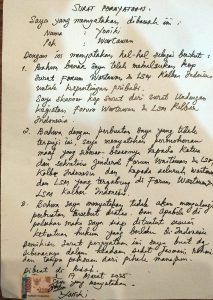 SURAT PERNYATAAN.
Saya yang menyatakan dibawah ini :
Nama : Yanik
Pek : Wartawan
Dengan ini menyatakan hal-hal sebagai berikut :
1. Bahwa benar saya telah
Surat Forum Wartawan & LSM Kalbar Indonesia
untuk kepentingan pribadi.
Saya dari Surat Undangan
kegiatan Forum Wartawan & LSM Kalbar
Indonesia
2. Bahwa dengan perbuatan saya yang tidak
terpuji ini, saya menyatakan permohonan
maaf yang sebesar-besarnya kepada Ketua
dan Sekretaris Jenderal Forum Wartawan & LSM
Kalbar Indonesia dan kepada seluruh wartawan
dan LSM yang tergabung di Forum Wartawan
LSM Kalbar Indonesia.
3. Bahwa saya menyatakan tidak akan mengulangi
perbuatan tersebut diatas dan apabila di
kemudian hari saya siap dituntut sesuai
ketentuan hukum yang berlaku di Indonesia
Demikian Surat pernyataan ini saya buat dg
sebenarnya dalam keadaan sehat jasmani, rohani
dan tanpa paksaan dari pihak manapun
Dibuat di
Maret 2025
yang menyatakan